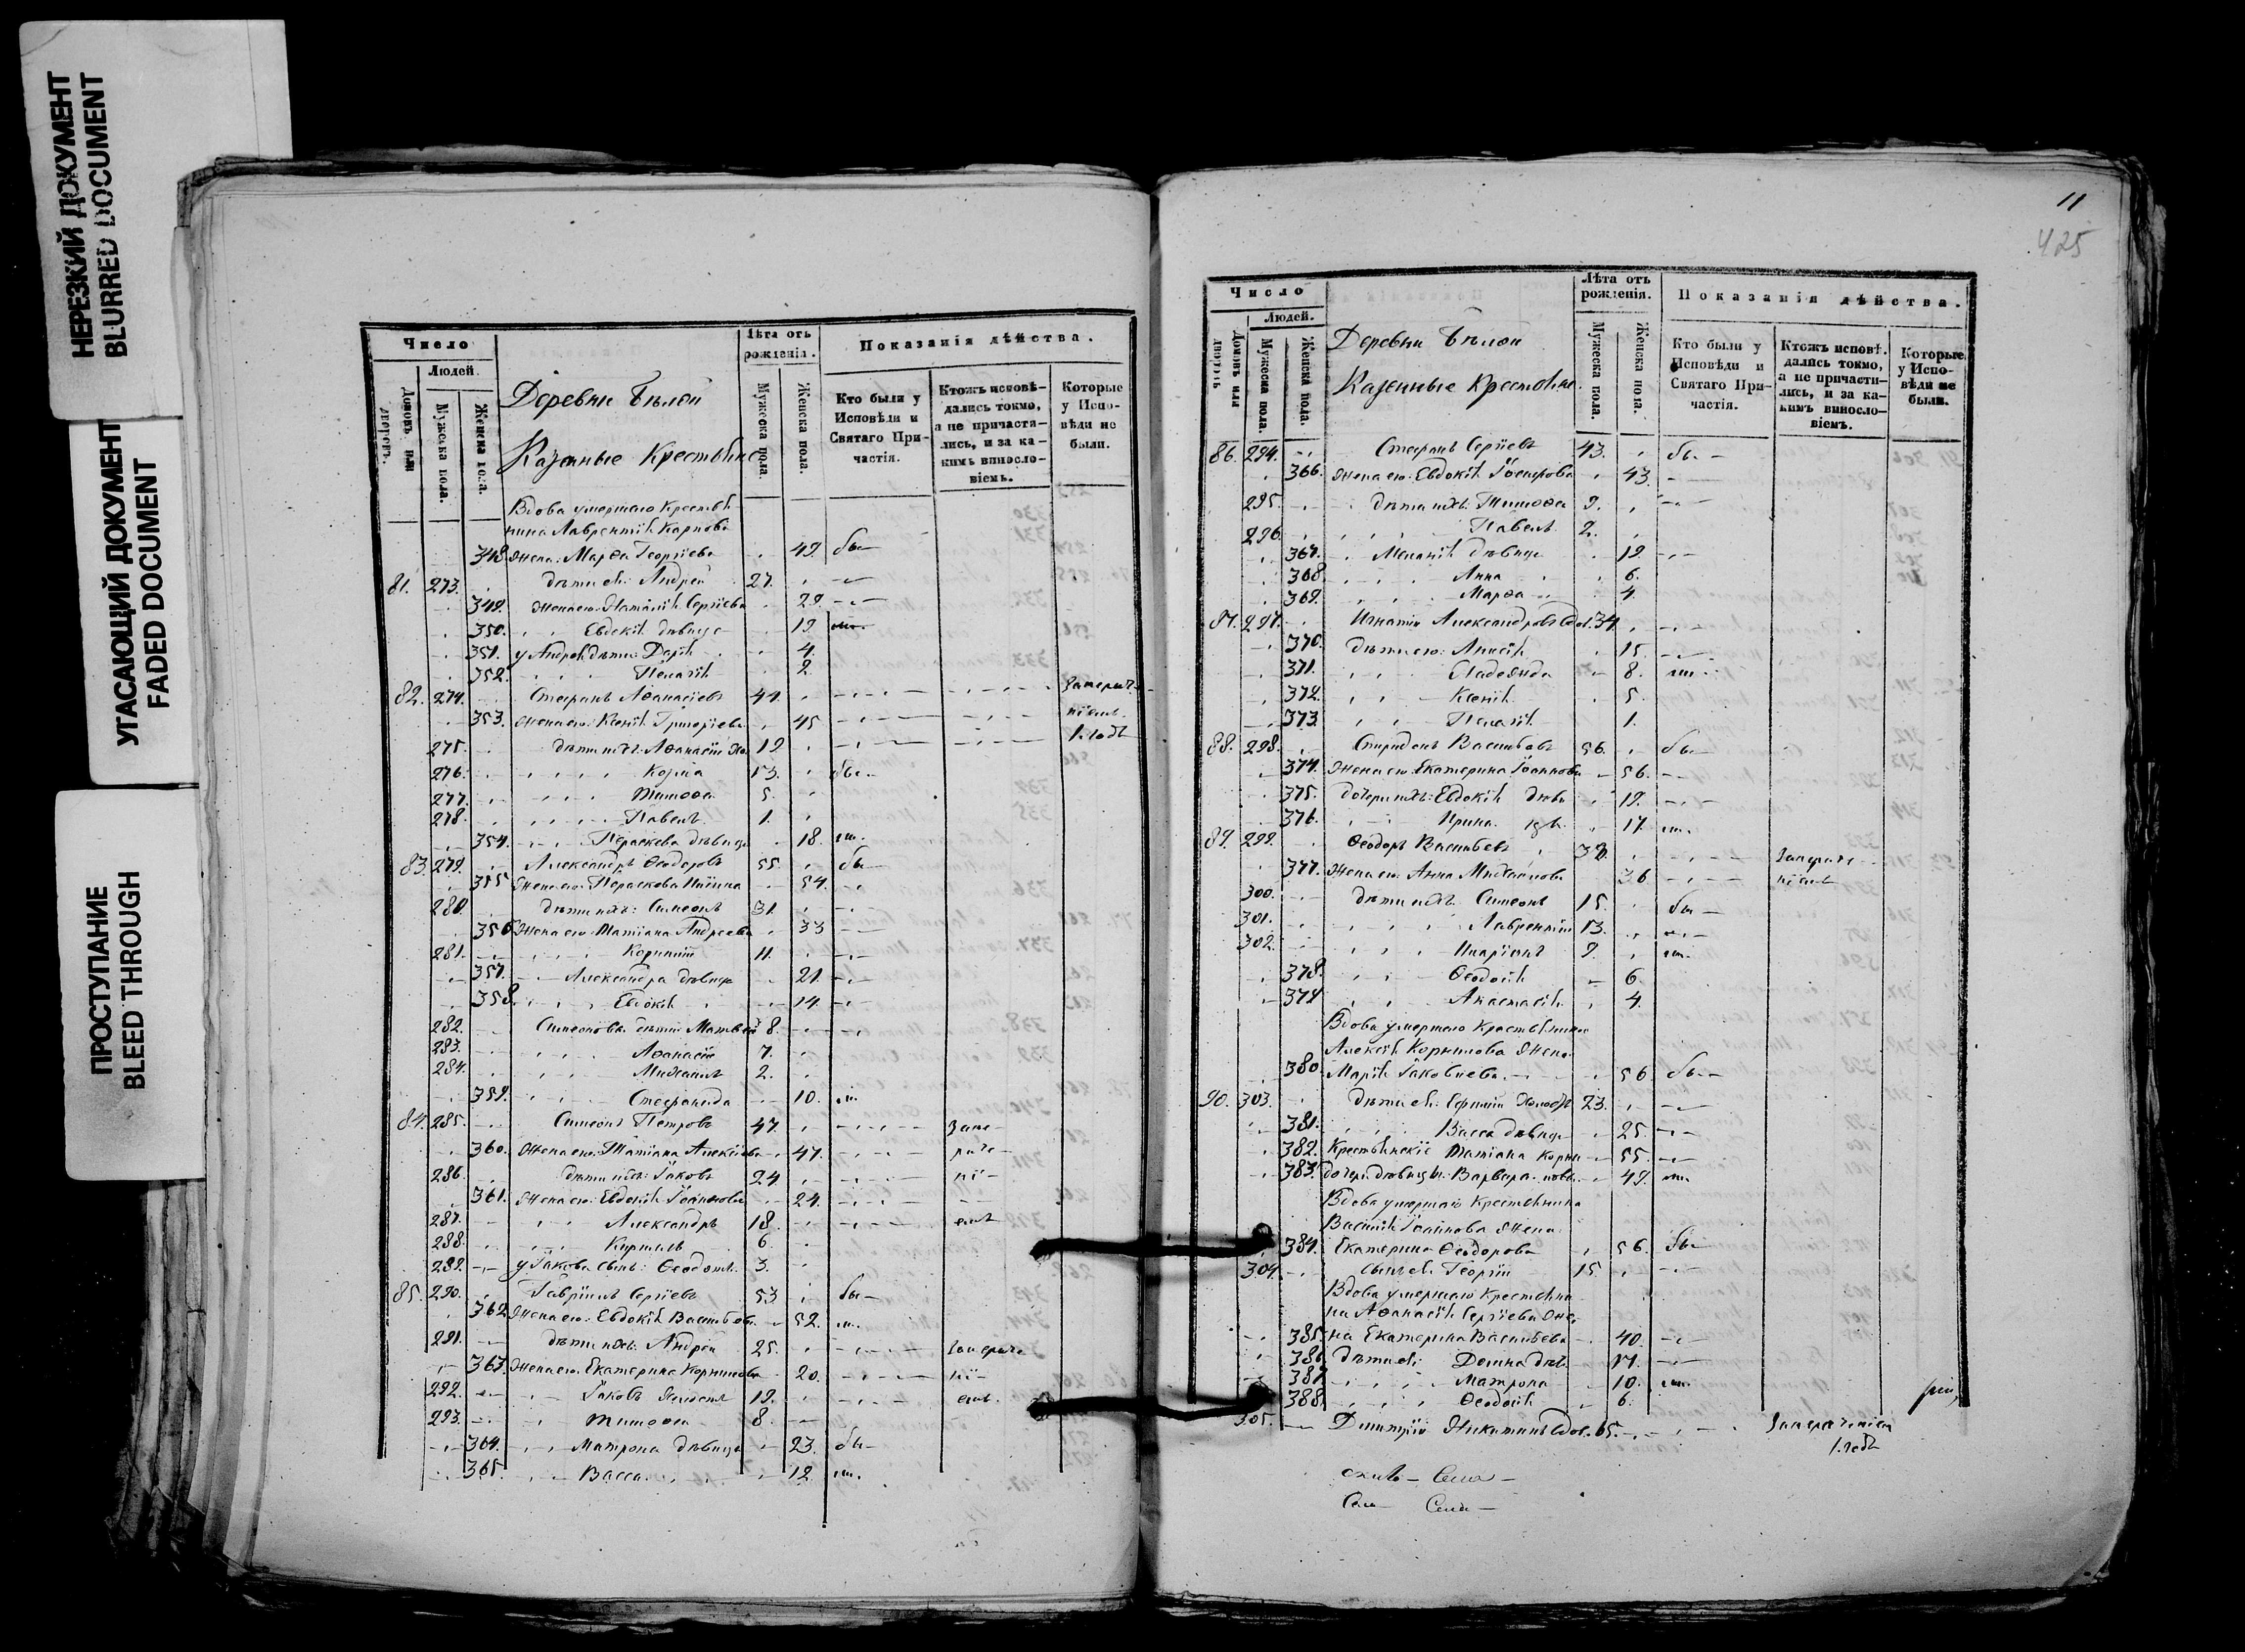 НЕРЕЗКИЙ ДОКУМЕНТ
BLURRED DOCUMENT
УГАСАЮЩИЙ ДОКУМЕНТ
FADED DOCUMENT
ПРОСТУПАНИЕ
BLEED THROUGH
Число
Людей.
Домовъ или дворовъ.
Мужеска пола.
Женска пола.
Деревни Бѣлой
Казенные Крестьяне
Лѣта отъ рожденія.
Мужеска пола.
Женска пола.
Показанія дѣйства.
Кто были у Исповѣди и Святаго Причастія.
Ктожъ исповѣдались токмо, а не причастились, и за какимъ винословіемъ.
Которые у Исповѣди не были.
Вдова умершаго Крестья
нина Лаврентія Карпова
348 Жена: Марѳа Георгіева 49. бы
81. 273. дѣти ея: Андрей 27.
349. Жена его: Наталія Сергіева 29.
350. Евдокія дѣвица 19.
351. у Андрея дѣти: Дарія 4.
352. Пелагія 2
82. 274. Стефанъ Аѳанасіевъ 44.
353. Жена его: Ксенія Григоріева 45
275. дѣти ихъ: Аѳанасій 19
276. Козма 13. бы
277. Тимоѳей 5.
278. Павелъ 1.
354. Параскева дѣвица 18.
83. 279. Александръ Ѳеодоровъ 55. бы
355 Жена его: Параскева 54.
280. дѣти ихъ: Симеонъ 31.
356 Жена его: Татіана Андреева 33
281. Корнилій 11.
357. Александра дѣвица 21.
358. Евдокія 14.
282. Симеоновы дѣти: Матвей 8.
283. Аѳанасій 7.
284. Михаилъ 2.
359. Стефанида 10.
84. 285. Симеонъ Петровъ 47.
360. Жена его: Татіана Алексіева 47.
286. дѣти ихъ: Іаковъ 24
361. Жена его: Евдокія Іоаннова 24.
287. Александръ 18.
288. Кириллъ 6.
289. у Іакова сынъ: Ѳеодотъ 3.
85. 290. Гавріилъ Сергіевъ 53. бы
362 Жена его: Евдокія Васильева 52.
291. дѣти ихъ: Андрей 25.
363. Жена его: Екатерина Корнилова 20.
292. Іаковъ 19.
293. Тимоѳей 8.
364. Матрона дѣвица 23. бы
365. Васса 12
11
425
Число
Людей.
Домовъ или дворовъ
Мужеска пола.
Женска пола.
Деревни Бѣлой
Казенные Крестьяне
Лѣта отъ рожденія.
Мужеска пола.
Женска пола.
Показанія дѣйства.
Кто были у Исповѣди и Святаго Причастія.
Ктожъ исповѣдались токмо, а не причастились, и за какимъ винословіемъ.
Которые у Исповѣди не были.
86. 294. Стефанъ Сергіевъ 43. бы
366. Жена его: Евдокія 43.
295. дѣти ихъ: Тимоѳей 9.
296. Павелъ 2.
367. Меланія дѣвица 19.
368. Анна 6.
369. Марѳа 4.
87. 297. Игнатій Александровъ вдов. 34
370. дѣти его: Анисія 15.
371. Надежда 8.
372. Ксенія 5.
373. Пелагія 1.
88. 298. Спиридонъ Васильевъ 56. бы
374. Жена его: Екатерина Іоаннова 56.
375. дочери ихъ: Евдокія дѣви 19.
376. Ирина 17.
89. 299. Ѳеодоръ Васильевъ
377. Жена его: Анна Михаилова 36
300. дѣти ихъ: Симеонъ 15. бы
301. Лаврентій 13.
302. Иларіонъ 9.
378. Ѳеодосія 6.
379 Анастасія 4.
Вдова умершаго Крестьянина
Алексія Корнилова Жена
380. Марія Іаковлева 56. бы
90. 303. дѣти ея: 23.
381. Васса дѣвица 25.
382. Крестьянскіе Татіана 55.
383. дочери дѣвицы: Варвара 49.
Вдова умершаго Крестьянина
Василія Іоаннова Жена
384. Екатерина Ѳеодорова 56. бы
304. сынъ ея Георгій 15.
Вдова умершаго Крестьяни
на Аѳанасія Сергіева Же
385. на Екатерина Васильева 40.
386. дѣти ея: Домна дѣв. 17.
387. Матрона 10.
388. Ѳеодосія 6.
305. Димитрій Никитинъ вдов. 65.